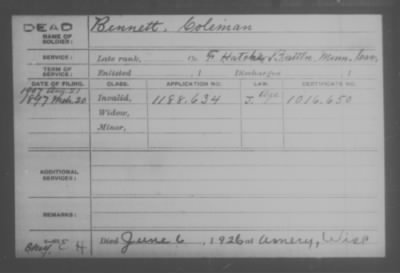 DEAD
NAME OF SOLDIER:
Bennett, Coleman
SERVICE:
Late rank, Co. F Hatch's Battln. Minn. Cav.
TERM OF SERVICE:
Enlisted , 1 Discharged , 1
DATE OF FILING. CLASS. APPLICATION NO. LAW. CERTIFICATE NO.
1907 Aug. 21
1897 Mch. 20 Invalid, 1188.634 J. Age 1016.650
Widow,
Minor,
ADDITIONAL SERVICES:
REMARKS:
C H Died June 6, 1926 at Amery, Wisc